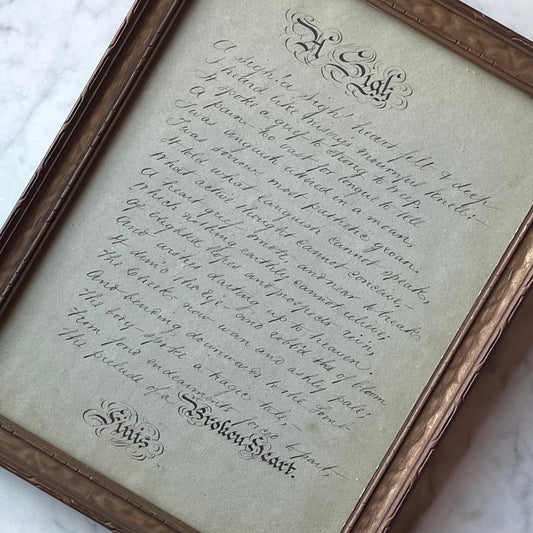 A Sigh
A sigh! a sigh! heart felt, of deep
I heard like misery's mournful knell;
It spoke a grief to strong to weep
A pain, too vast for tongue to tell
'Twas anguish uttered in a moan,
'Twas sorrows most pathetic groan.
It told what language cannot speak,
What active thought cannot conceive,
A heart grief smote, and near to break
Which nothing earthly can relieve;
Of blighted hopes and prospects
And wishes darting up to heaven.
If dim'd the eye and robb'd of bloom
The cheek now wan and ashy pale;
And bending downwards to the Tomb
The very spoke a tragic tale,
From fond endearments forced to part,
The prelude of a Broken Heart.
Finis